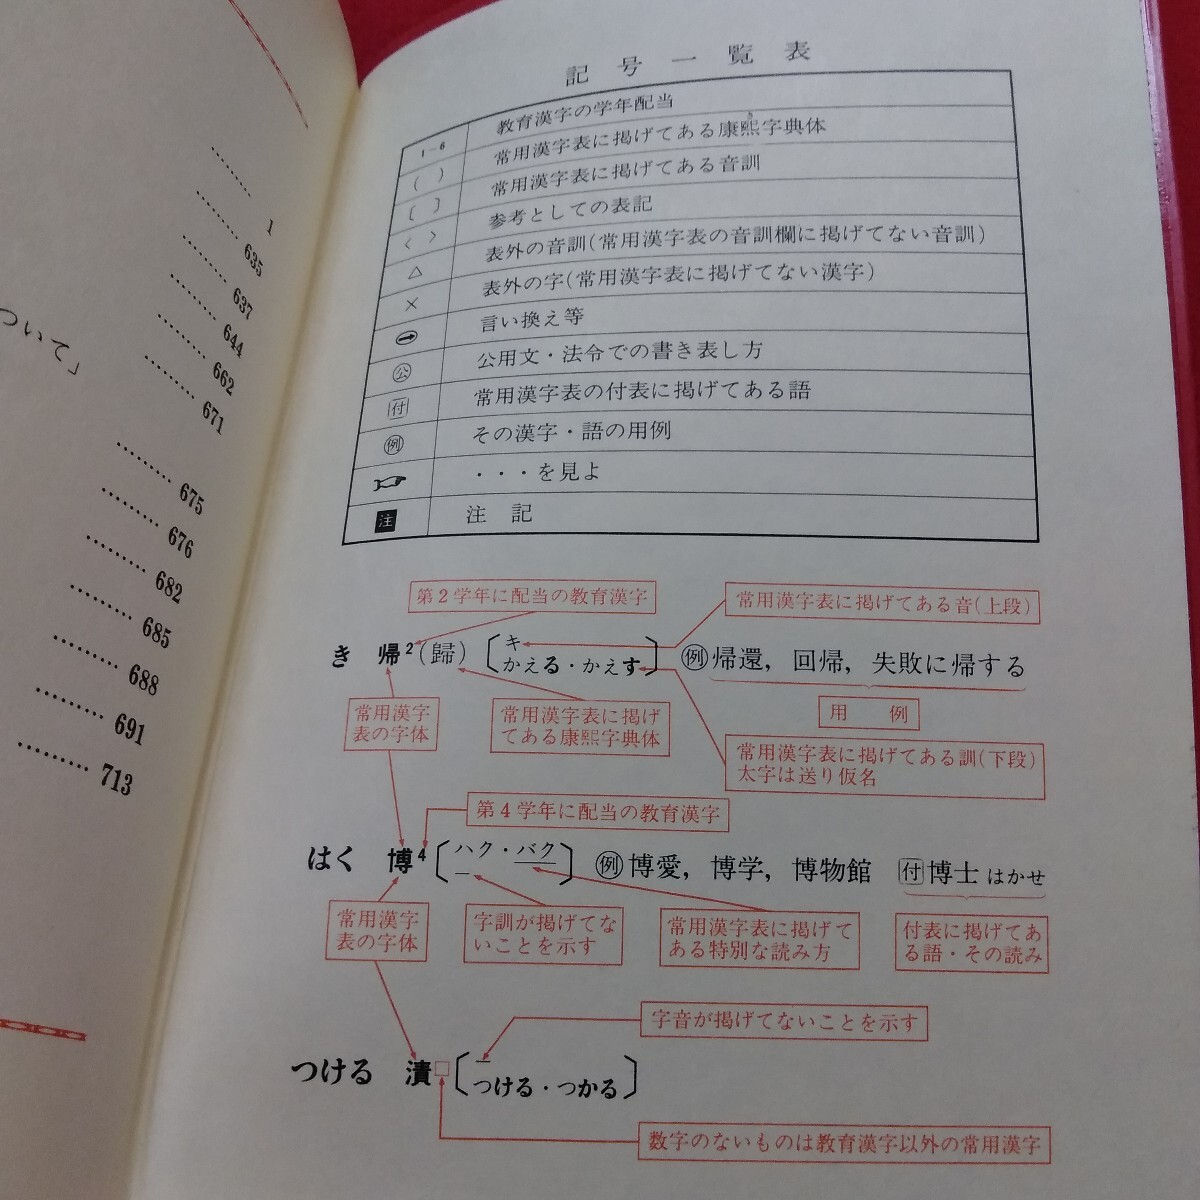 ………
1
………
635
………
637
………
644
………
662
………
671
………
675
………
676
………
682
………
685
………
688
………
691
………
713
「ついて
記号一覧表
1-6 教育漢字の学年配当
( ) 常用漢字表に掲げてある康熙字典体
〔 〕 常用漢字表に掲げてある音訓
〈 〉 参考としての表記
△ 表外の音訓(常用漢字表の音訓欄に掲げてない音訓)
× 表外の字(常用漢字表に掲げてない漢字)
➡ 言い換え等
㊫ 公用文・法令での書き表し方
付 常用漢字表の付表に掲げてある語
例 その漢字・語の用例
☞ ・・・を見よ
注 注 記
第2学年に配当の教育漢字
常用漢字表に掲げてある音(上段)
き 帰2(歸)〔キ
かえる・かえす〕 例 帰還，回帰，失敗に帰する
常用漢字
表の字体
常用漢字表に掲げ
てある康熙字典体
用 例
常用漢字表に掲げてある訓(下段)
太字は送り仮名
第4学年に配当の教育漢字
はく 博4〔ハク・バク
―〕 例 博愛，博学，博物館 付 博士 はかせ
常用漢字
表の字体
字訓が掲げてな
いことを示す
常用漢字表に掲げて
ある特別な読み方
付表に掲げてあ
る語・その読み
字音が掲げてないことを示す
つける 漬□〔―
つける・つかる〕
数字のないものは教育漢字以外の常用漢字